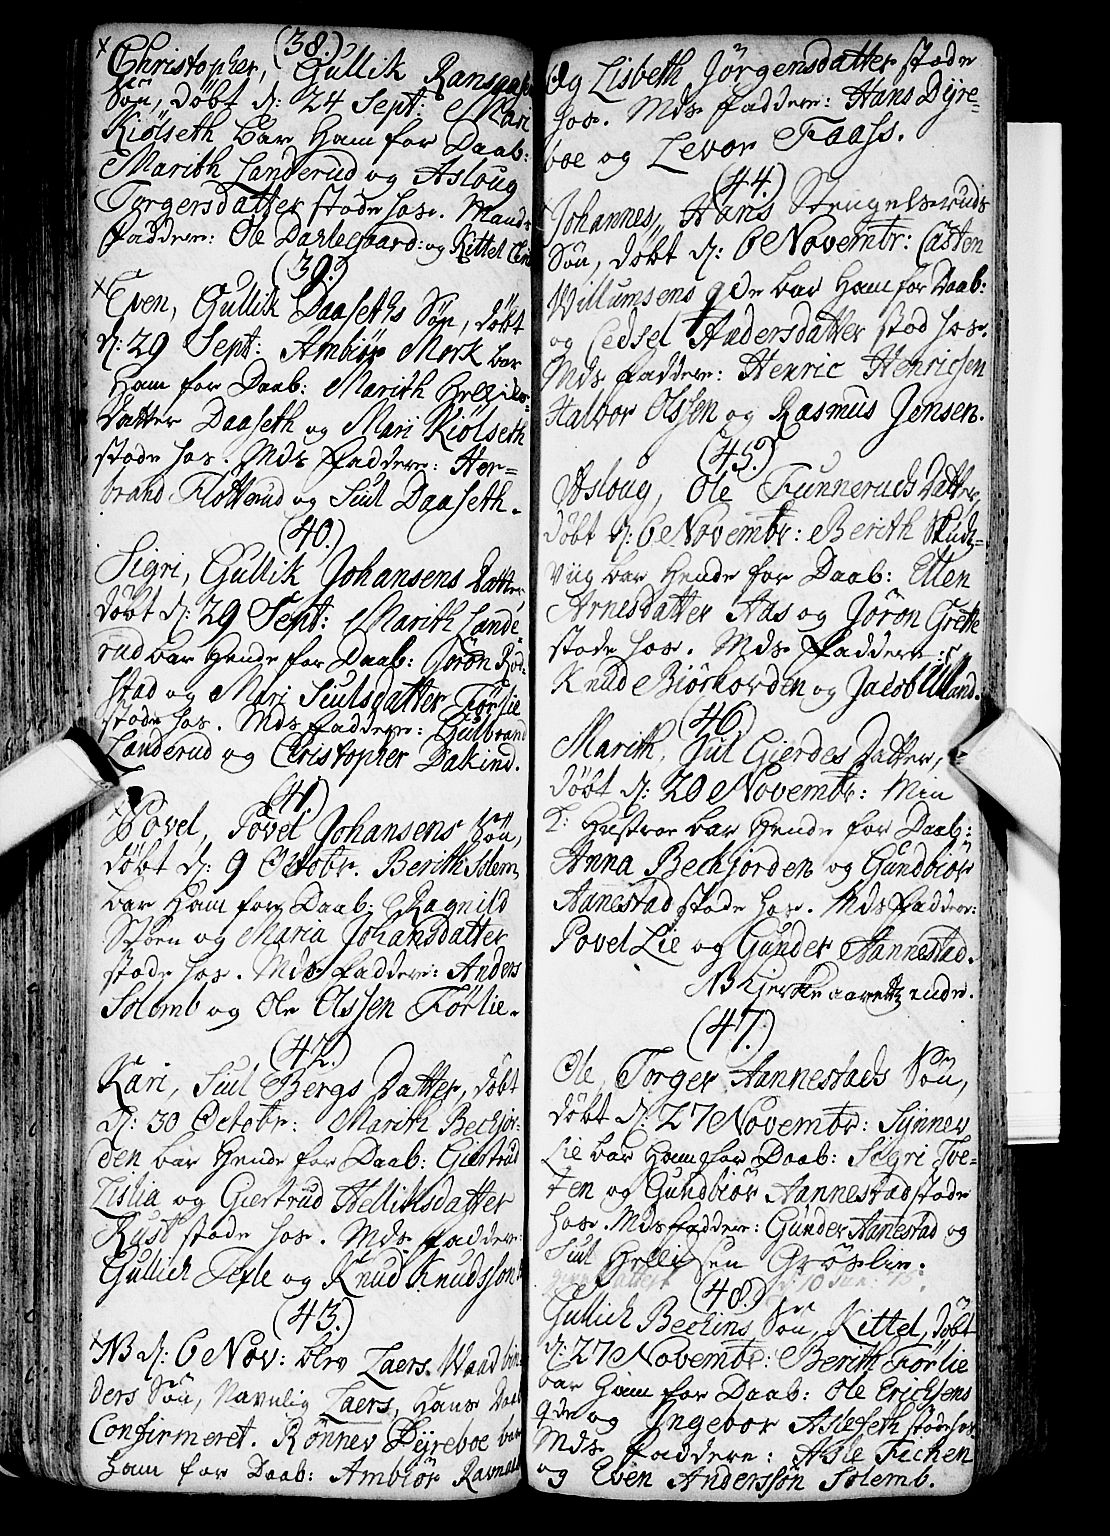 (38.)
Christopher, Gullik Ransgaks
Søn, døbt d: 24 Sept: Mari
Kiölseth bar Ham for Daab:
Marith Landerud og Asloug
Torgersdatter stode hos. Mands
Faddere: Ole Darlegaard: og Kittel
(39.)
Even, Gullik Daaseths Søn, døbt
d: 29 Sept: Ambiör Mork bar
Ham for Daab: Marith Hellichs-
datter Daaseth og Mari Kiölseth
stode hos. Mds Faddere: Her-
brand Flotterud og Juul Daaseth.
(40.)
Sigri, Gullik Johansens Datter,
døbt d: 29 Sept: Marith Lande-
rud bar Hende for Daab: Jöron Rod-
stad og Mari Juulsdatter Förlie
stode hos. Mds Faddere: Gulbrand
Landerud og Christopher Dakind.
(41.)
Povel, Povel Johansens Søn,
døbt d: 9 Octobr. Berith Solem
bar Ham for Daab: Ragnild
Støen og Maria Johansdatter
stode hos. Mds Faddere: Anders
Solemb og Ole Olssen Förlie.
(42.)
Kari, Juul Bergs Datter, døbt
d: 30 Octobr: Marith Beckjor-
den bar Hende for Daab: Giertrud
Lislia og Giertrud Hellichsdatter
Rust stode hos. Mds Faddere:
Gullich Tefle og Knud Knudssøn
(43.)
NB d: 6 Nov: blev Laers. Waadbin-
ders Søn, Navnlig Laers, Hans Daab
Confirmeret. Rønnev Dyreboe bar
ham for Daab: Ambiör Ravnaas
Og Lisbeth Jörgensdatter stode
hos. Mds Faddere: Hans Dyre-
boe og Levor Faass.
(44.)
Johannes, Hans Strugelseruds
Søn, døbt d: 6 Novembr: Casten
Willumsens qde bar Ham for Daab:
og Cedsel Andersdatter stod hos.
Mds Faddere: Henric Henricsen
Halvor Olssen og Rasmus Jensen.
(45.)
Asloug, Ole Funneruds Datter,
døbt d: 6 Novembr: Berith Skuds-
viig bar Hende for Daab: Ellen
Arnesdatter Aas og Jöron Grette
stode hos. Mds Faddere:
Knud Biörhorden og Jacob Ulland.
(46.)
Marith, Jul Gierdes Datter,
døbt d: 20 Novembr: Min
K: Hustroe bar Hende for Daab:
Anna Beckjorden og Gundbiör
Aanestad stode hos. Mds Faddere:
Povel Lie og Gunder Aannestad.
NB Kirke aaretz ende.
(47.)
Ole, Torger Aannestads Søn,
døbt d: 27 Novembr: Synnev
Lie bar Ham for Daab: Sigri Tve-
ten og Gundbiör Aannestad stode
hos. Mds Faddere: Gunder Aanestad og
Juul Hellichsen Gröslie.
(48.)
Gullich Beckins Søn, Kittel, døbt
d: 27 Novembr: Berith Förlie
bar Ham for Daab: Ole Erichsens
qde og Ingebor Aslesen stode hos
Mds Faddere: Asle Ficken
og Even Anderssøn Solemb.